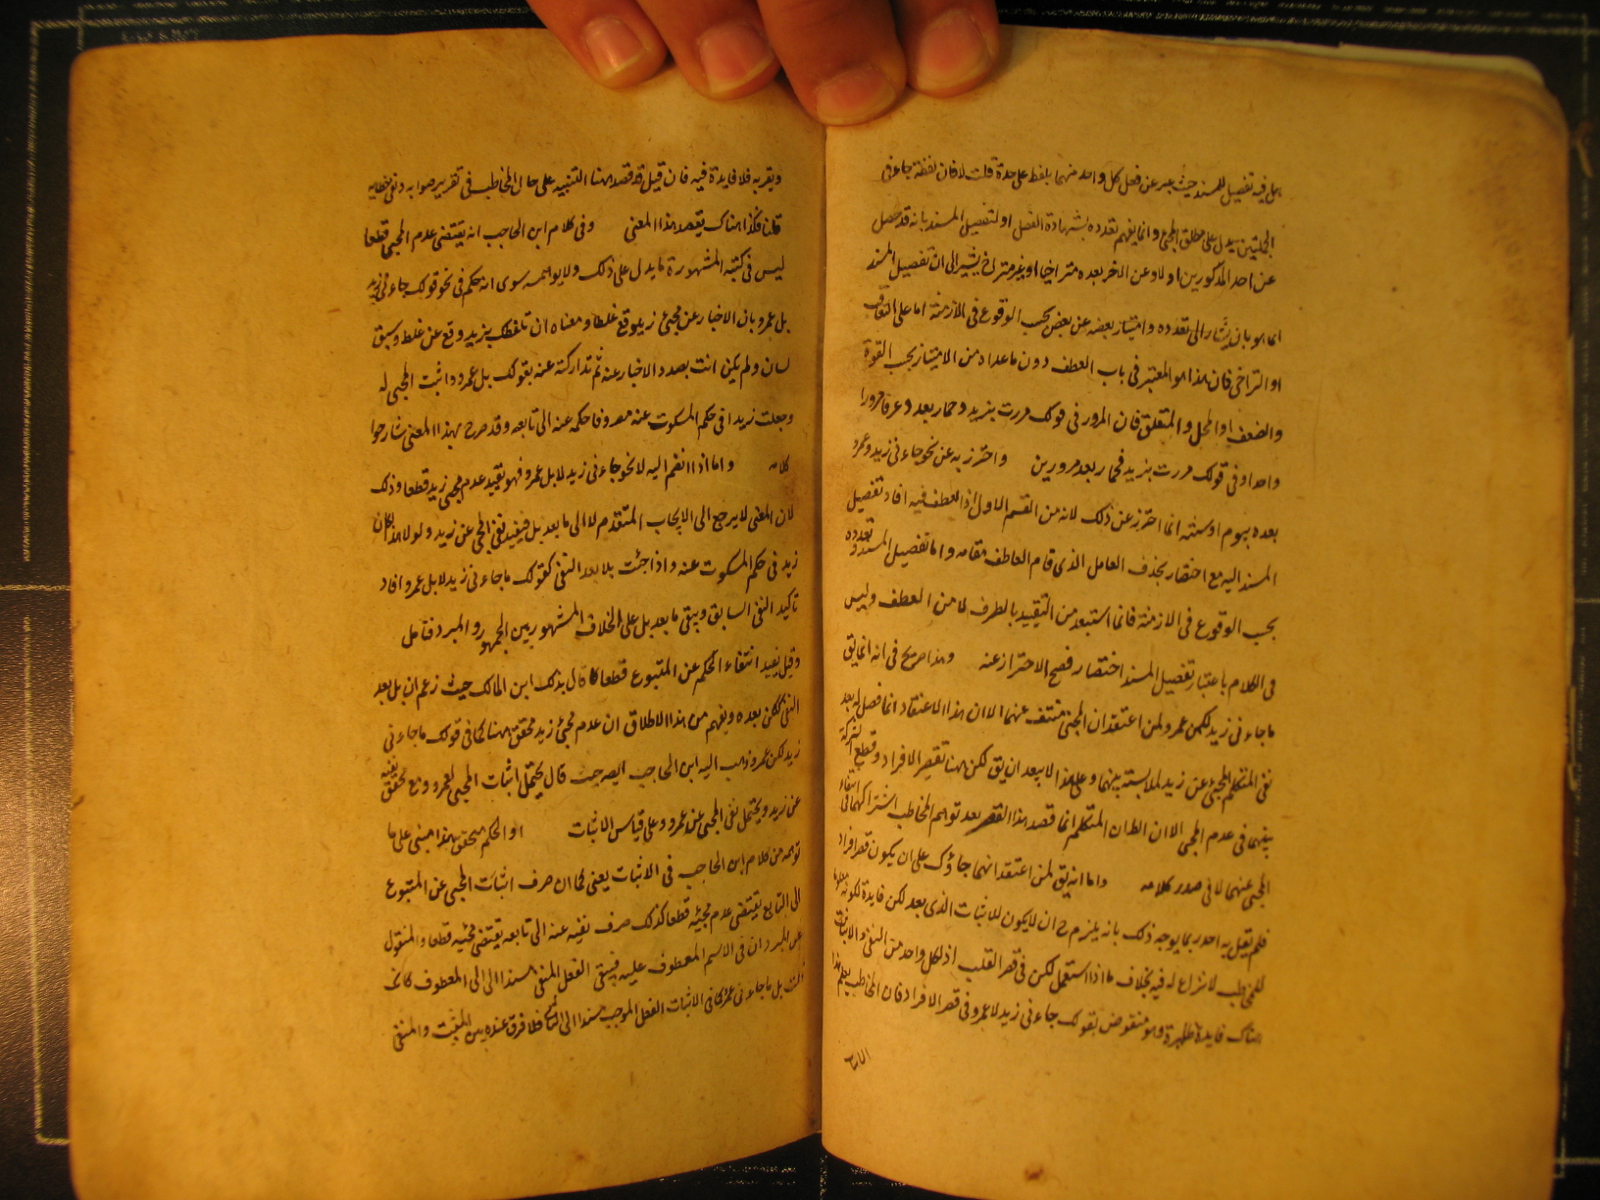 بل فيه تفصيل للمسند حيث عبر عن فعل كل واحد منهما بلفظ على حدة قلت لا فان لفظة جاءنى
الجلتين يدل على مطلق المجئ وانما يفهم تعدده بشهادة العقل او لتفصيل المسند بانه قد حصل
عن احد المذكورين اولا وعن الاخر بعده متراخيا او غير متراخ يشير الى ان تفصيل المسند
انما هو بان يشار الى تعدده وامتياز بعضه عن بعض بحسب الوقوع فى الازمنة اما على التعاقب
او التراخى فان هذا هو المعتبر فى باب العطف دون ما عداه من الامتياز بحسب القوة
والضعف او المحل والمتعلق فان المرور فى قولك مررت بزيد وحمار بعد وعرفا مرورا
واحدا وفى قولك مررت بزيد فحمار بعد مرورين واحترز به عن نحو جاءنى زيد وعمرو
بعده بيوم او سنة انما احترز عن ذلك لانه من القسم الاول اذ العطف فيه افاد تفصيل
المسند اليه مع اختصار بحذف العامل الذى قام العاطف مقامه واما تفصيل المسند وتعدده
بحسب الوقوع فى الازمنة فانما استفيد من التقييد بالظرف لا من العطف وليس
فى الكلام باعتبار تفصيل المسند اختصار فصح الاحتراز عنه وهذا صريح فى انه انما يق
ما جاءنى زيد لكن عمرو لمن اعتقد ان المجئ منتف عنهما الا ان هذا الاعتقاد انما فصل له بعد
نفى المتكلم المجئ عن زيد لملابسته بينهما وعلى هذا لا يبعد ان يق لكن ههنا لقصر الافراد وقطع الشركة
بينهما فى عدم المجئ الا ان الظ ان المتكلم انما قصد هذا القصر بعد توهم المخاطب اشتراكهما فى انتفاء
المجئ عنهما لا فى صدر كلامه واما انه يق لمن اعتقد انهما جاؤك على ان يكون قصر افراد
فلم يقل به احد ربما يوجه ذلك بانه يلزم ح ان لا يكون للاثبات الذى بعد لكن فايدة لكونه معلوما
للمخاطب لا نزاع له فيه بخلاف ما اذا استعمل لكن فى قصر القلب اذ لكل واحد من النفى والاثبات
هناك فايدة ظاهرة وهو منقوض بقولك جاءنى زيد لا عمرو فى قصر الافراد فان المخاطب يعلم هذا
الاثبا
وبقربه فلا فايدة فيه فان قيل قد قصد ههنا التنبيه على حال المخاطب فى تقرير صوابه ونفى خطايه
قلنا فكذا هناك يقصد هذا المعنى وفى كلام ابن الحاجب انه يقتضى عدم المجئ قطعا
ليس فى كتبه المشهورة ما يدل على ذلك ولا يوهمه سوى انه حكم فى نحو قولك جاءنى زيد
بل عمرو بان الاخبار عن مجئ زيد وقع غلطا ومعناه ان تلفظك بزيد وقع عن غلط وسبق
لسان ولم يكن انت بصدد الاخبار عنه ثم تداركته عنه بقولك بل عمرو واثبت المجئ له
وجعلت زيدا فى حكم المسكوت عنه مصروفا حكمه عنه الى تابعه وقد صرح بهذا المعنى شارحوا
كلامه واما اذا انضم اليه لا نحو جاءنى زيد لا بل عمرو فهو يفيد عدم مجئ زيد قطعا وذلك
لان المعنى لا يرجع الى الايجاب المتقدم لا الى ما بعد بل فيفيد نفى المجئ عن زيد ولولا هذا لكان
زيد فى حكم المسكوت عنه واذا جئت بلا بعد النفى كقولك ما جاءنى زيد لا بل عمرو افاد
تاكيد النفى السابق ويبقى ما بعد بل على الخلاف المشهور بين الجمهور والمبرد فتامل
وقيل يفيد انتفاء الحكم عن المتبوع قطعا كما قال بذلك ابن المالك حيث زعم ان بل بعد
النفى لكن بعده ويفهم من هذا الاطلاق ان عدم مجئ زيد محقق ههنا كما فى قولك ما جاءنى
زيد لكن عمرو ذهب اليه ابن الحاجب ايضا حيث قال يحتمل اثبات المجئ لعمرو مع تحقق نفيه
عن زيد ويحتمل نفى المجئ عن عمرو وعلى قياس الاثبات او الحكم متحقق هذا مبنى على ما
توهمه من كلام ابن الحاجب فى الاثبات يعنى كما ان صرف اثبات المجئ عن المتبوع
الى التابع يقتضى عدم مجيئه قطعا كذلك صرف نفيه عنه الى تابعه يقتضى مجيئه قطعا والمنقول
عن المبرد ان فى الاسم المعطوف عليه فيبقى الفعل المنفى مسندا الى المعطوف كانك
قلت بل ما جاءنى عمرو كما فى الاثبات الفعل الموجب مسندا الى الثانى فلا فرق عنده بين المثبت والمنفى